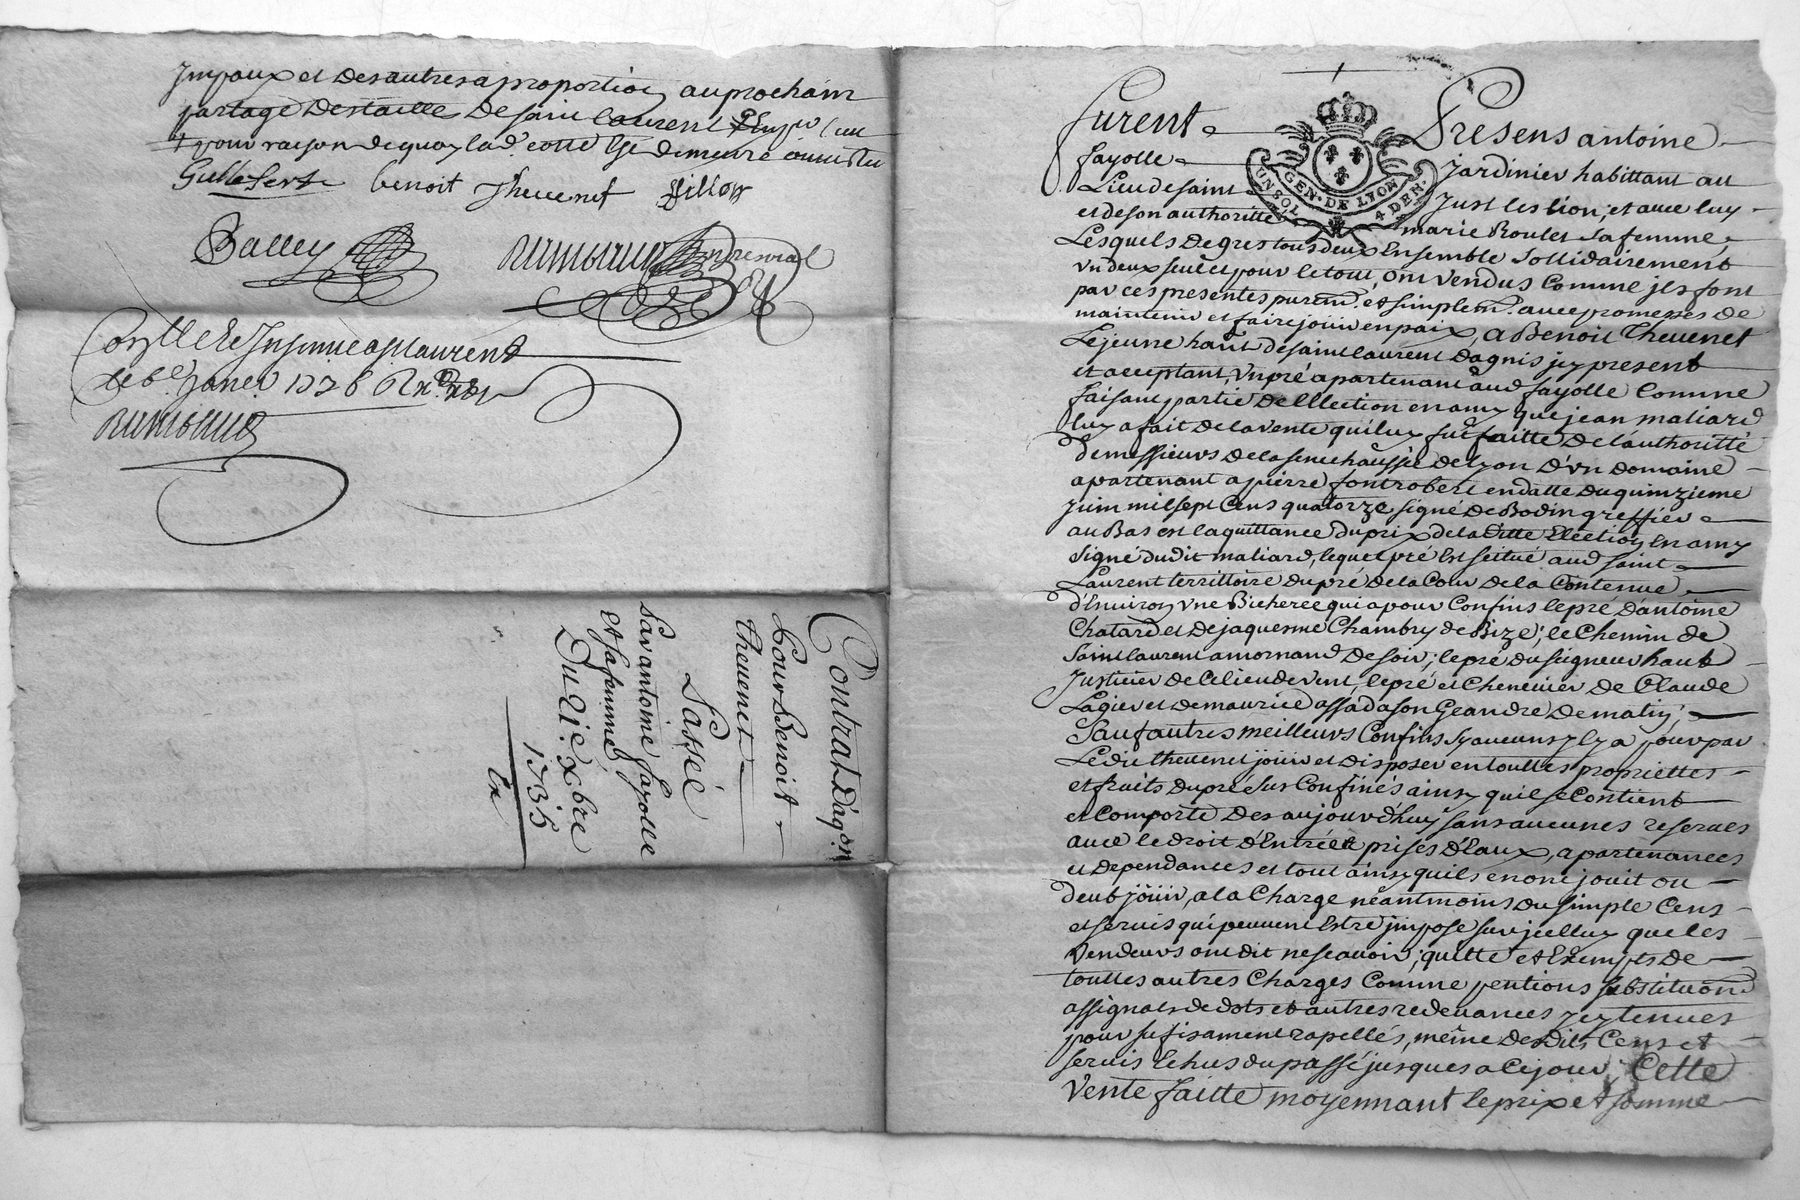 Jmpaux et des autres a proportion au prochain
partage des taille de saint Laurent
pour raison de quoy lad. cotte
benoit Theuenet Pillon
Balley
Jnsinué a st Laurent
le 6e Janer 1736
Contrat d'aqon
Pour Benoit
Theuenet
Passée
Par antoine fayolle
et sa femme
Du 21e xbre
1735
GEN. DE LYON
UN SOL 4 DEN.
Furent Presens antoine
fayolle jardinier habittant au
Lieu de saint Just les lion, et auec luy
et de son authoritté marie Roulet sa femme,
Lesquels de gres tous deux Ensemble sollidairement
vn deux seul et pour le tout, ont vendus Comme jls font
par ces presentes puremt. et simplemt. auec promesses de
maintenir et faire jouir en paix, a Benoit Theuenet
Le jeune hant de saint laurent dagnis jcy present
et acceptant, vn pré apartenant aud fayolle Comme
faisant partie de l'Election en amy que jean maliard
luy a fait de la vente qui luy fut faitte de l'authoritté
de messieurs de la senechaussée de lyon d'vn domaine
apartenant a pierre fontrobert en datte du quinzieme
juin mil sept Cens quatorze signé de Bodin greffier
au Bas est la quittance du prix de la ditte Election En amy
signé du dit maliard, lequel pré Est scitué aud saint
Laurent territtoire du pré de la Cour de la Contenue
d'Enuiron vne Bicheree qui a pour Confins le pré d'antoine
Chatard et de jaquesme Chambry de Bize; le Chemin de
saint laurent a mornand de soir; le pré du seigneur haut
Justicier de Ce lieu de vent, le pré et Cheneuier de Claude
Lagier et de maurice assada son Geandre de matin;
Sauf autres meilleurs Confins sy aucuns y ly a pour par
Ledit theuenet jouir et disposer en touttes propriettes
et fruits du pré sus Confinés ainsy qu'il se Contient
et Comporte des aujourd'huy sans aucunes reserues
auec le droit d'Entrée et prises d'Eaux, apartenances
et dependances et tout ainsy qu'ils en ont jouit ou
deub jouir, a la Charge néantmoins du simple Cens
et seruis qui peuuent Estre jmpose sur jcelluy que les
vendeurs ont dit ne scauoir; quitte et Exempts de
touttes autres Charges Comme pentions substitutions
assignats de dots et autres redeuances jcy tenues
pour sufisament rapellés, même des dits Cens et
seruis Echus du passé jusques a Ce jour, Cette
Vente faitte moyennant le prix et somme